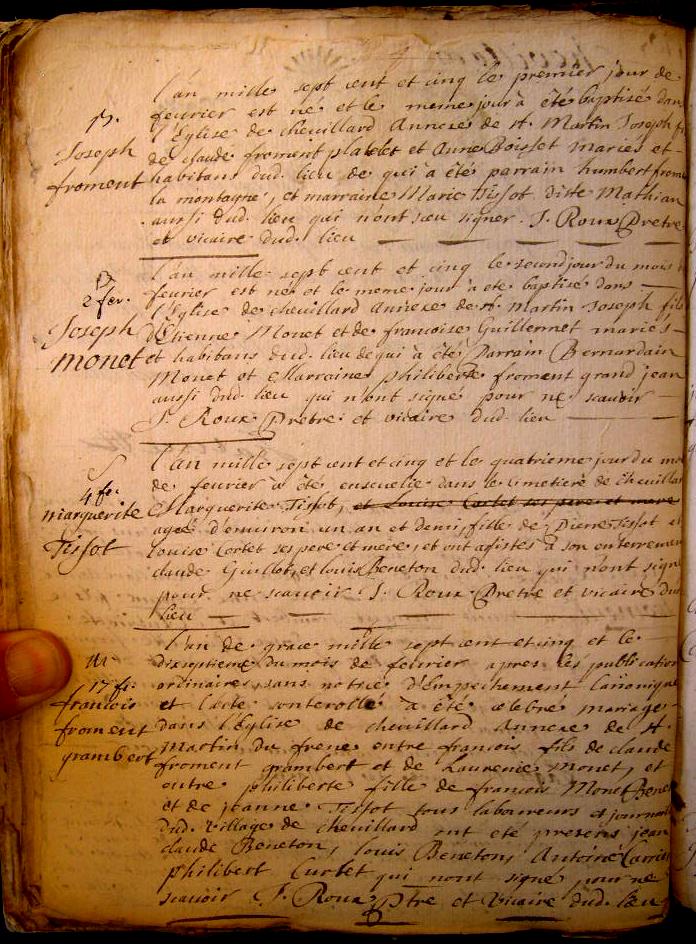 B.
Joseph
froment
l'an mille sept cent et cinq le premier jour de
fevrier est né et le meme jour à été baptisé dans
l'Eglise de chevillard Annexe de st. Martin Joseph
de claude froment platelet et Anne Boisset mariés et
habitans dud. lieu de qui à étés parrain humbert from
la montagne, et marraine Marie Tissot ditte Mathian
aussi dud. lieu qui n'ont sceu signer. J. Roux Pretre
et vicaire dud. lieu
B
2 fev.
Joseph
monet
l'an mille sept cent et cinq le second jour du mois
fevrier est né et le meme jour à été baptisé dans
l'Eglise de chevillard Annexe de st. Martin Joseph fils
d'Etienne Monet et de francoise Guillermet mariés
et habitans dud. lieu de qui à été Parrain Bernardain
Monet et Marraine philiberte froment grand jean
aussi dud. lieu qui n'ont signé pour ne scavoir
J. Roux Pretre et vicaire dud. lieu
S
4 fev.
marguerite
Tissot
l'an mille sept cent et cinq et le quatrieme jour du moi
de fevrier à été ensevelie dans le cimetiere de chevillar
Marguerite Tissot, et Louise Cortet ses pere et mere
agée d'environ un an et demi, fille de Pierre Tissot et
Louise Cortet ses pere et mere, et ont assistés à son enterremen
claude Guillot, et louis Beneton dud. lieu qui n'ont signé
pour ne scavoir J. Roux Pretre et vicaire dud
lieu
M.
17 fe.
francois
froment
grambert
l'an de grace mille sept cent et cinq et le
dixseptieme du mois de fevrier apres les publication
ordinaires, sans notice d'Empechement Canonique
et l'acte controllé à été celebré mariage
dans l'Eglise de chevillard Annexe de st.
Martin du frene entre francois fils de claude
froment grambert et de Laurence Monet, et
entre philiberte fille de francois Monet Benet
et de jeanne Tissot tous laboureurs et journal
dud. village de chevillard ont eté presens jean
claude Beneton, louis Beneton, Antoine Carrie
philibert Curtet qui nont signé pour ne
scavoir J. Roux Ptre et Vicaire dud. lieu